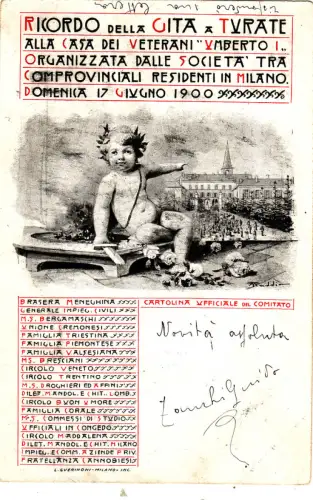 RICORDO DELLA GITA A TURATE
ALLA CASA DEI VETERANI "UMBERTO I"
ORGANIZZATA DALLE SOCIETA' TRA
COMPROVINCIALI RESIDENTI IN MILANO.
DOMENICA 17 GIUGNO 1900
BRASERA MENEGHINA
GENERALE IMPIEG. CIVILI
M.S. BERGAMASCHI
UNIONE CREMONESI
FAMIGLIA TRIESTINA
FAMIGLIA PIEMONTESE
FAMIGLIA VALSESIANA
M.S. BRESCIANI
CIRCOLO VENETO
CIRCOLO TRENTINO
M.S. DROGHIERI ED AFFINI
DILET. MANDOL. E CHIT. LOMB.
CIRCOLO BUON UMORE
FAMIGLIA CORALE
M.S. COMMESSI DI STUDIO
UFFICIALI IN CONGEDO
CIRCOLO MADDALENA
DILET. MANDOL. E CHIT. MILANO
IMPIEG. E COMM. AZIENDE PRIV.
FRATELLANZA CANNOBIESI
L. GUERINONI-MILANO-INC.
CARTOLINA UFFICIALE DEL COMITATO
Novità assoluta
Guido